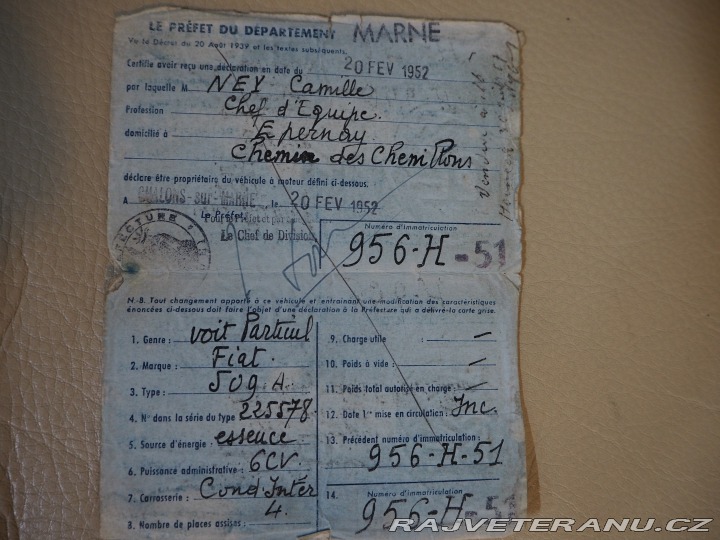 LE PRÉFET DU DÉPARTEMENT MARNE
Vu le Décret du 20 Août 1939 et les textes subséquents.
Certifie avoir reçu une déclaration en date du 20 FEV 1952
par laquelle M NEY Camille
Profession Chef d'Equipe.
domicilié à Epernay
Chemin des Chenillons
déclare être propriétaire du véhicule à moteur défini ci-dessous.
A CHALONS-SUR-MARNE, le 20 FEV 1952
Le Préfet,
Pour le Préfet et par
Le Chef de Division
Numéro d'immatriculation
956-H-51
N.-B. Tout changement apporté à ce véhicule et entraînant une modification des caractéristiques
énoncées ci-dessous doit faire l'objet d'une déclaration à la Préfecture qui a délivré la carte grise.
1. Genre : voit Particul
2. Marque : Fiat.
3. Type : 509.A.
4. N° dans la série du type 225578.
5. Source d'énergie essence
6. Puissance administrative : 6CV.
7. Carrosserie : Cond Inter
8. Nombre de places assises : 4.
9. Charge utile : —
10. Poids à vide : —
11. Poids total autorisé en charge : —
12. Date 1re mise en circulation : Inc.
13. Précédent numéro d'immatriculation :
956-H-51
14. Numéro d'immatriculation
956-H-51
RAJVETERANU.CZ